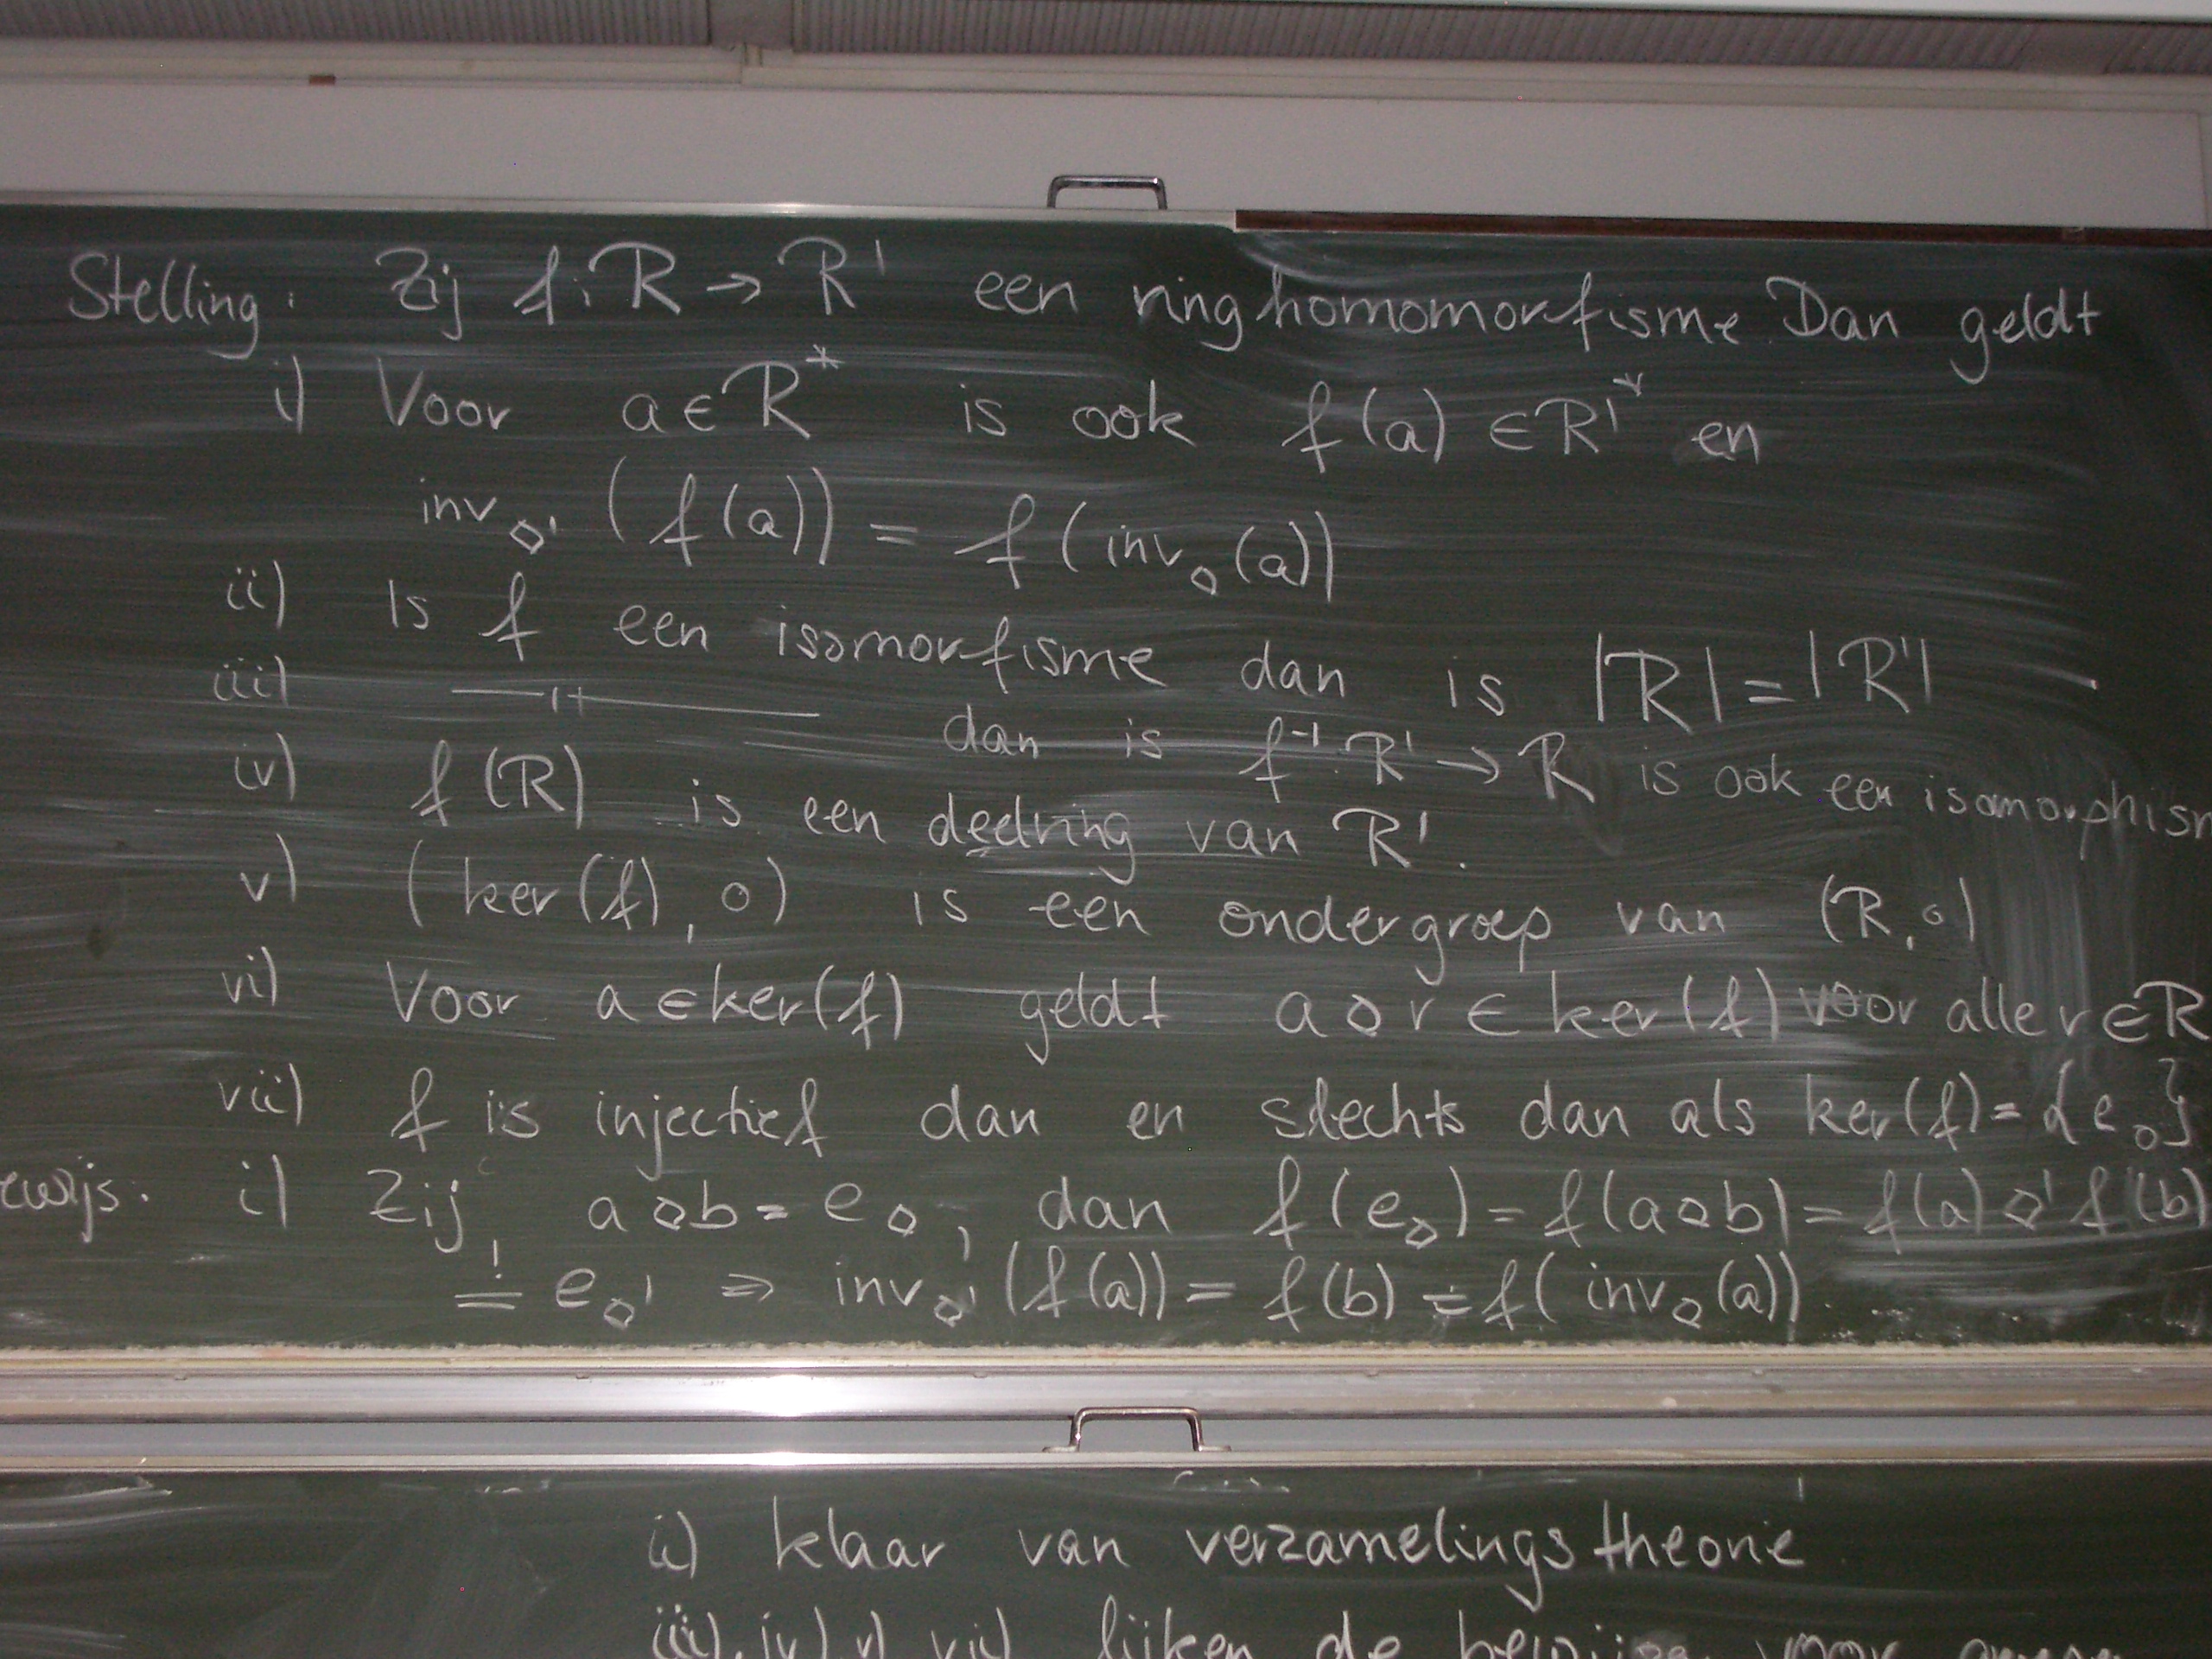 Stelling: Zij f: R → R' een ringhomomorfisme. Dan geldt
i) Voor a ∈ R* is ook f(a) ∈ R'* en
inv◇' (f(a)) = f(inv◇(a))
ii) Is f een isomorfisme dan is |R| = |R'|
iii) —''— dan is f⁻¹: R' → R is ook een isomorphism
iv) f(R) is een deelring van R'.
v) (ker(f), ∘) is een ondergroep van (R, ∘)
vi) Voor a ∈ ker(f) geldt a ◇ r ∈ ker(f) voor alle r ∈ R
vii) f is injectief dan en slechts dan als ker(f) = {e∘}
ewijs. i) Zij a ◇ b = e◇, dan f(e◇) = f(a ◇ b) = f(a) ◇' f(b)
=! e◇' ⇒ inv◇' (f(a)) = f(b) = f(inv◇(a)).
ii) klaar van verzamelingstheorie
iii), iv) v) vii) lijken de